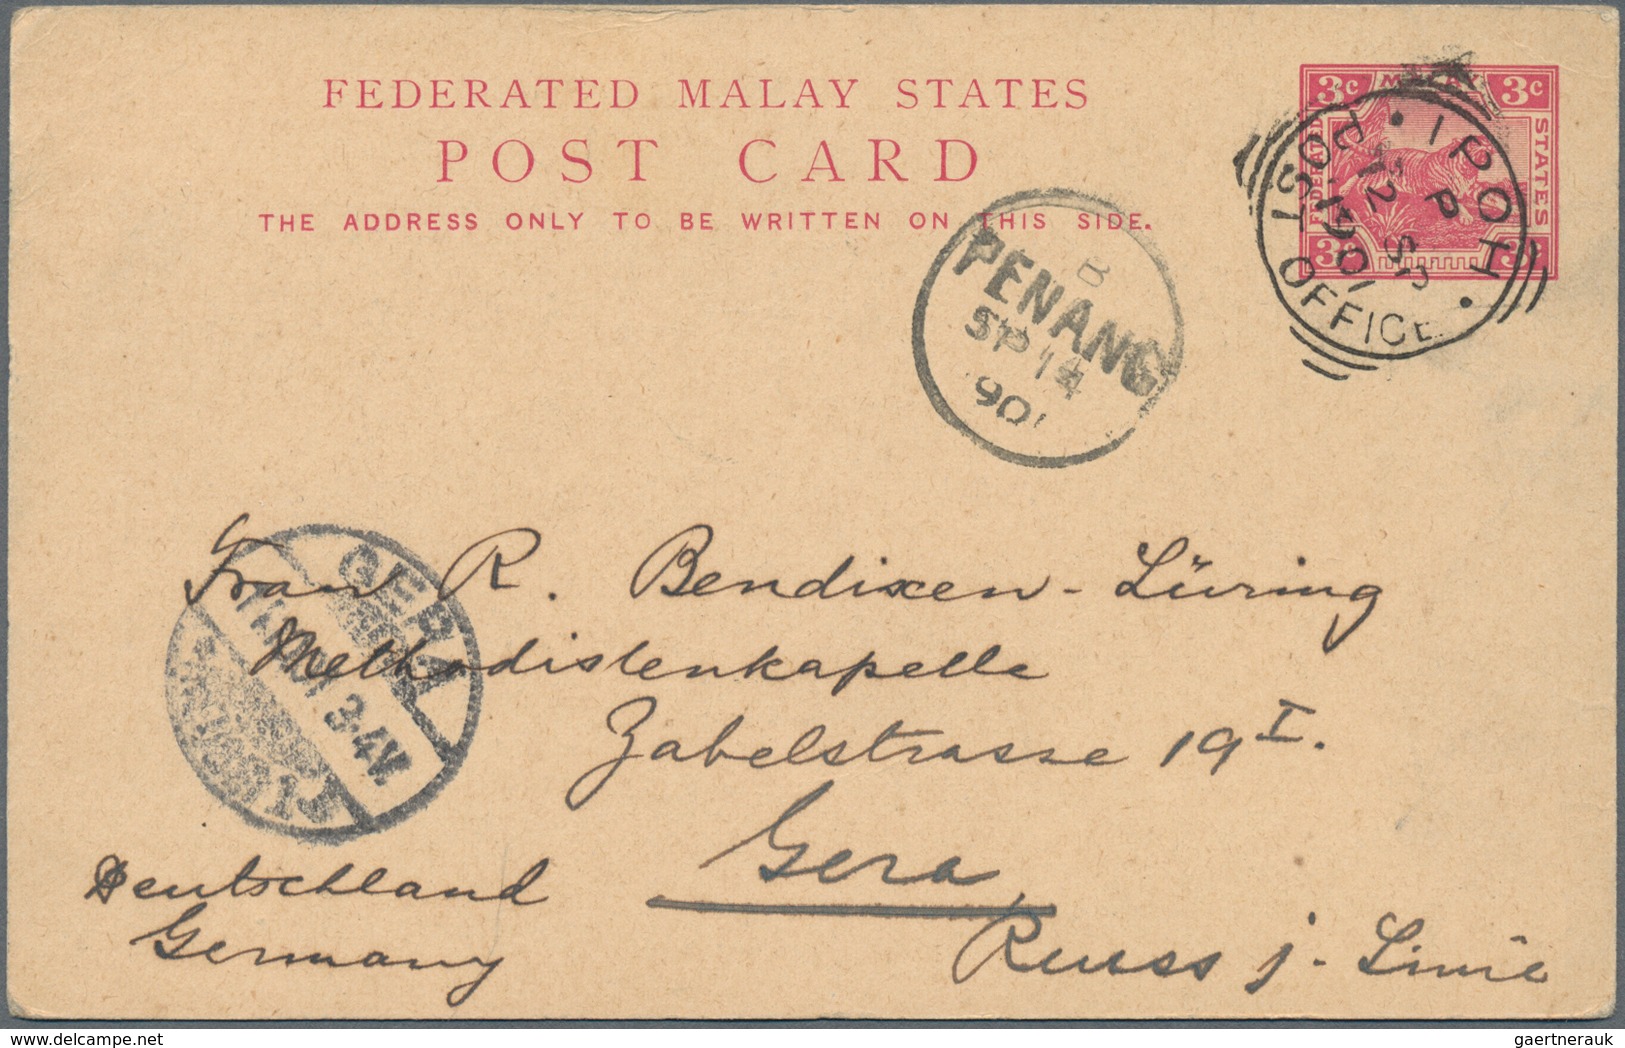 FEDERATED MALAY STATES
POST CARD
THE ADDRESS ONLY TO BE WRITTEN ON THIS SIDE.
3c MALAY 3c
FEDERATED
STATES
3c 3c
IPOH
P
12 SP
1901
POST OFFICE
B
PENANG
SP 14
901
GERA
3-4V.
Frau R. Bendixen-Lüring
Methodistenkapelle
Zabelstrasse 19 I.
Gera
Deutschland
Germany
Reuss j. Linie
delcampe.net
gaertnerauk